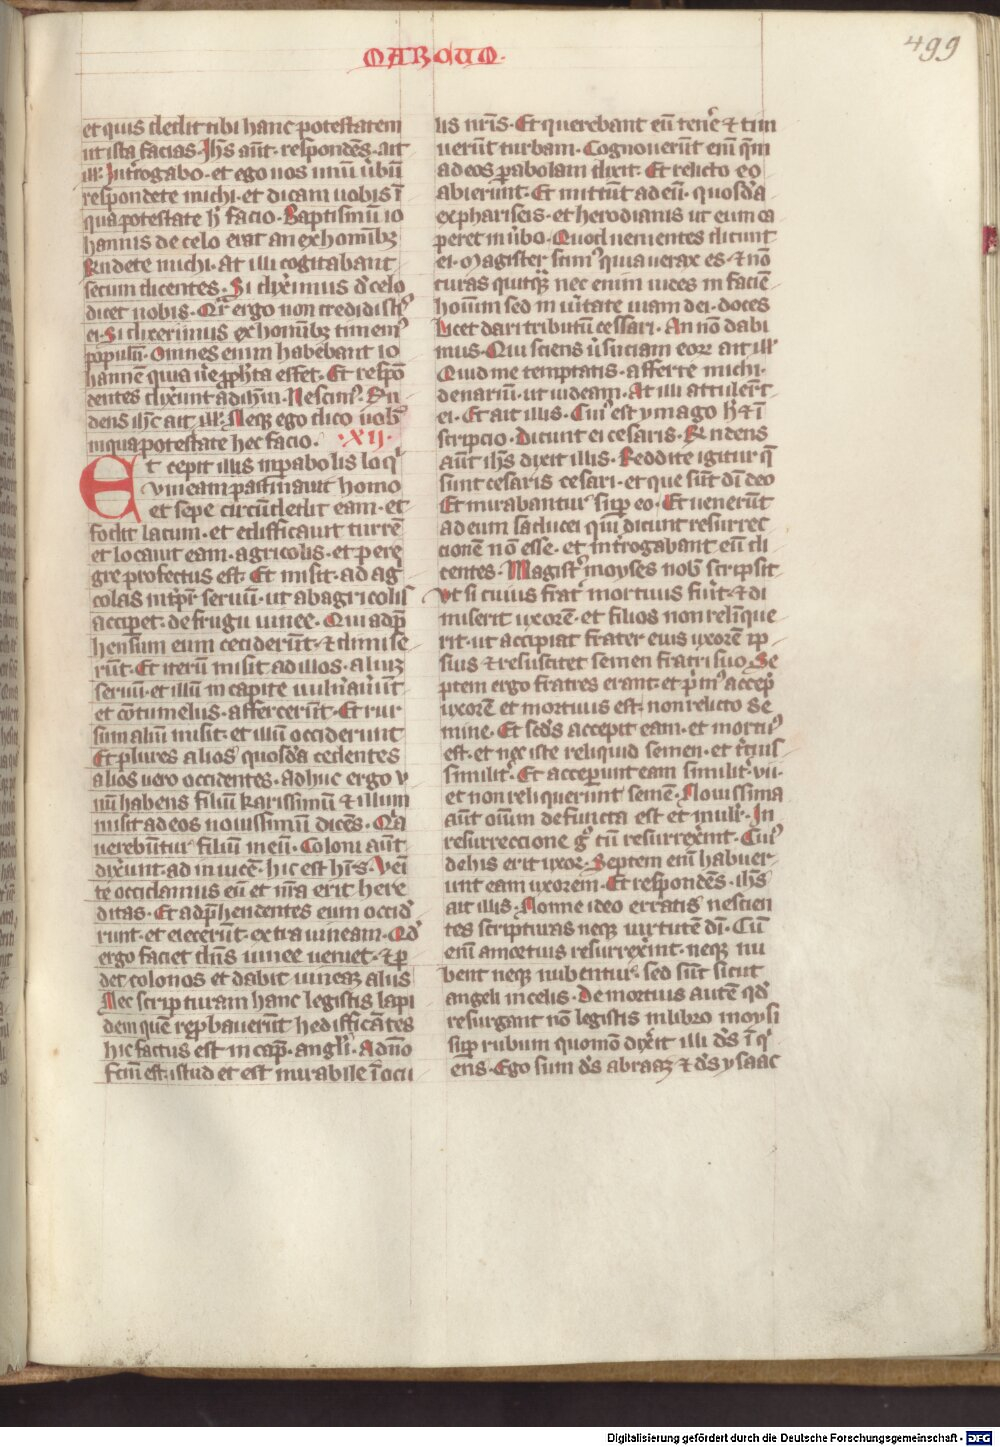 MARCUM.
499
et quis dedit tibi hanc potestatem
ut ista facias. Jh̄s aūt. respondēs. ait
ill'. Int'rogabo. et ego uos unū ũbū
respondete michi. et dicam uobis ī
qua potestate h' facio. Baptismū io
hannis de celo erat an ex homībꝫ
Rn̄dete michi. At illi cogitabant
secum dicentes. Si dix'imus d' celo
dicet uobis. Qr̄ ergo non credidist'
ei. Si dixerimus ex homībꝫ timem'
populū. Omnes enim habebant io
hannē quia ue' ꝓph'ta esset. Et respō
dentes dixunt ad ih̄m. Nescim'. Rn̄
dens ih̄c ait ill'. Neqꝫ ego dico uob'
in qua potestate hec facio. XIJ.
Et cepit illis in pabolis loq'
Vineam pastinauit homo
et sepe circūdedit eam. et
fodit lacum. et edifficauit turrē
et locauit eam. agricolis. et pere
gre profectus est. Et misit. ad ag
colas in tp̄r seruū. ut ab agricolis
accip̄et. de frugu uinee. Qui adp̄
hensum eum ceciderūt. ⁊ dimise
rūt. Et iterū misit ad illos. aliuꝫ
seruū. et illū in capite uuln'au'ūt
et cōtumeliis. affecerūt. Et rur
sum aliū misit. et illū occiderunt
Et plures alios quosd'a cedentes
alios uero occidentes. Adhuc ergo v
nū habens filiū karissimū ⁊ illum
misit ad eos nouissimū dicēs. Q'a
uerebūtur filiū meū. Coloni aūt
dix'unt. ad inuicē. hic est h'i's. Vei
te occidamus eū et nr̄a erit here
ditas. Et adp̄hendentes eum occid'
runt. et eiecerūt. extra uineam. Qd'
ergo faciet dn̄s uinee ueniet. ⁊ p̄
det colonos et dabit uineaꝫ aliis
Nec scripturam hanc legistis lapi
dem quē rep̄bauerūt hedifficātes
hic factus est in cap̄. angl'i. A dn̄o
fc̄m est. istud et est mirabile ī ocu
lis nr̄is. Et querebant eū ten'e ⁊ tim
uerūt turbam. Cognouerūt enī qm̄
ad eos p̄abolam dixit. Et relicto eo
abierunt. Et mittūt ad eū. quosd'a
ex phariseis. et herodianis ut eum ca
peret in ũbo. Quod uenientes dicunt
ei. Magister scim' quia uerax es. ⁊ nō
curas quitqꝫ nec enim uides in faciē
hoīum sed in ũitate uiam dei. doces
Licet dari tributū cessari. An nō dabi
mus. Qui sciens ũsuciam eoꝝ ait ill'
Quid me temptatis. afferte michi.
denariū. ut uideam. At illi attulert
ei. Et ait illis. Cui' est ymago h' ⁊ ī
scripcio. Dicunt ei cesaris. Rn̄dens
aūt ih̄s dixit illis. Reddite igitur q̄
sunt cesaris cesari. et que sūt dī deo
Et mirabantur sup̄ eo. Et uenerūt
ad eum saducei qui dicunt resurrec
cionē nō esse. et int'rogabant eū di
centes. Magist' moyses nob' scripsit
Vt si cuius frat' mortuus fu'it. ⁊ di
miserit uxorē. et filios non reliq̄ue
rit. ut accipiat frater eius uxorē ip̄
sius ⁊ resuscitet semen fratri suo. Se
ptem ergo fratres erant. et p'm' accep̄
uxorē et mortuus est. non relicto se
mine. Et sc̄ds accepit eam. et mortu'
est. et nec iste reliquid semen. et t'cius
similit'. Et accep̄unt eam similit'. vii.
et non reliquerunt semē. Nouissima
aūt oīum defuncta est et mulr'. In
resurreccione g' cū resurrex'int. Cui'
de his erit uxor. Septem enī habuer
unt eam uxorem. Et respondēs. ih̄s
ait illis. Nonne ideo erratis nescien
tes scripturas neqꝫ uirtutē dī. Cū
enī amortuis resurrex'int. neqꝫ nu
bent neqꝫ nubentur. sed sūt sicut
angeli in celis. De mortuis autē qd'
resurgant nō legistis in libro moysi
sup̄ rubum quomō dix'it illi d's ī q'
ens. Ego sum d's abraaꝫ ⁊ d's ysaac
Digitalisierung gefördert durch die Deutsche Forschungsgemeinschaft - DFG